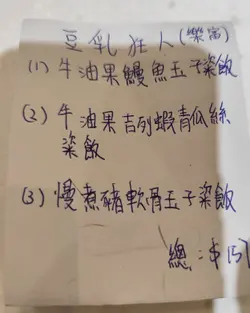 豆乳狂人(樂富)
(1) 牛油果鰻魚玉子粢飯
(2) 牛油果吉列蝦青瓜絲
粢飯
(3) 慢煮豬軟骨玉子粢飯
總:$157